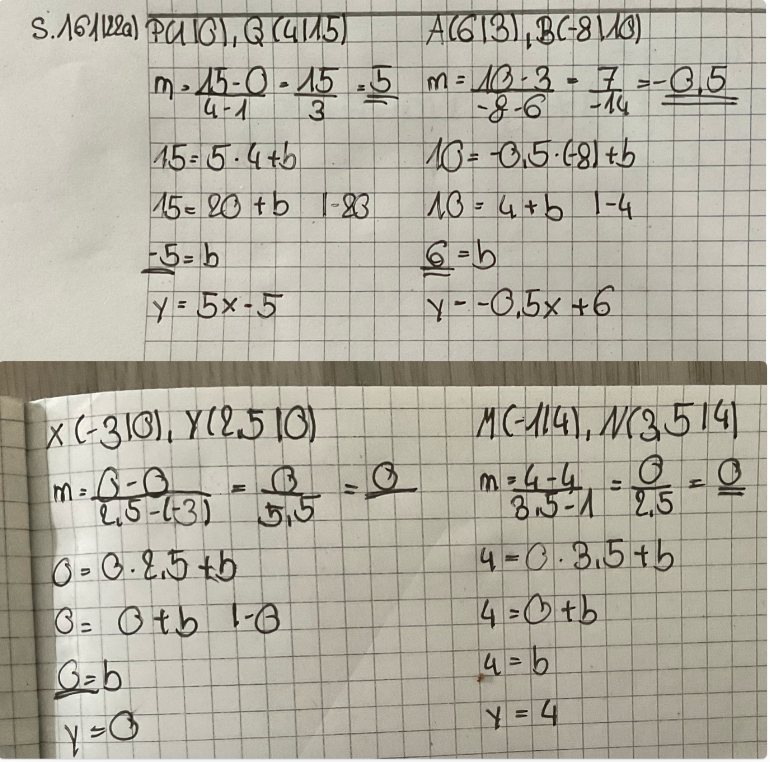 S.161|22a) P(1|0), Q(4|15)
m = 15-0 / 4-1 = 15 / 3 = 5
15 = 5 · 4 + b
15 = 20 + b |-20
-5 = b
y = 5x - 5
A(6|3), B(-8|10)
m = 10-3 / -8-6 = 7 / -14 = -0,5
10 = -0,5 · (-8) + b
10 = 4 + b |-4
6 = b
y = -0,5x + 6
X(-3|0), Y(2,5|0)
m = 0-0 / 2,5-(-3) = 0 / 5,5 = 0
0 = 0 · 2,5 + b
0 = 0 + b |-0
0 = b
y = 0
M(-1|4), N(3,5|4)
m = 4-4 / 3,5-1 = 0 / 2,5 = 0
4 = 0 · 3,5 + b
4 = 0 + b
4 = b
y = 4